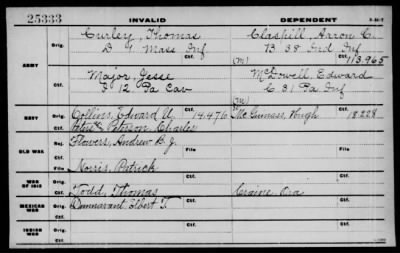 25333 INVALID DEPENDENT
ARMY
Orig. Curley, Thomas Claspill, Arron C.
D 9 Mass Inf B 38 Ind Inf
Ctf. (M) 113.965
Orig. Major, Jesse McDowell, Edward
I 12 Pa Cav C 81 Pa Inf
Ctf. (M)
NAVY
Orig. Collins, Edward A. 14.476 McGuiness, Hugh 18228
Ctf. Peterson, Charles
OLD WAR
Rej. Flowers, Andrew B. J.
File File
Norris, Patrick
WAR OF 1812
Orig.
Ctf. Todd, Thomas Craine, Ora
MEXICAN WAR
Orig. Elbert T.
Ctf.
INDIAN WAR
Orig.
Ctf.